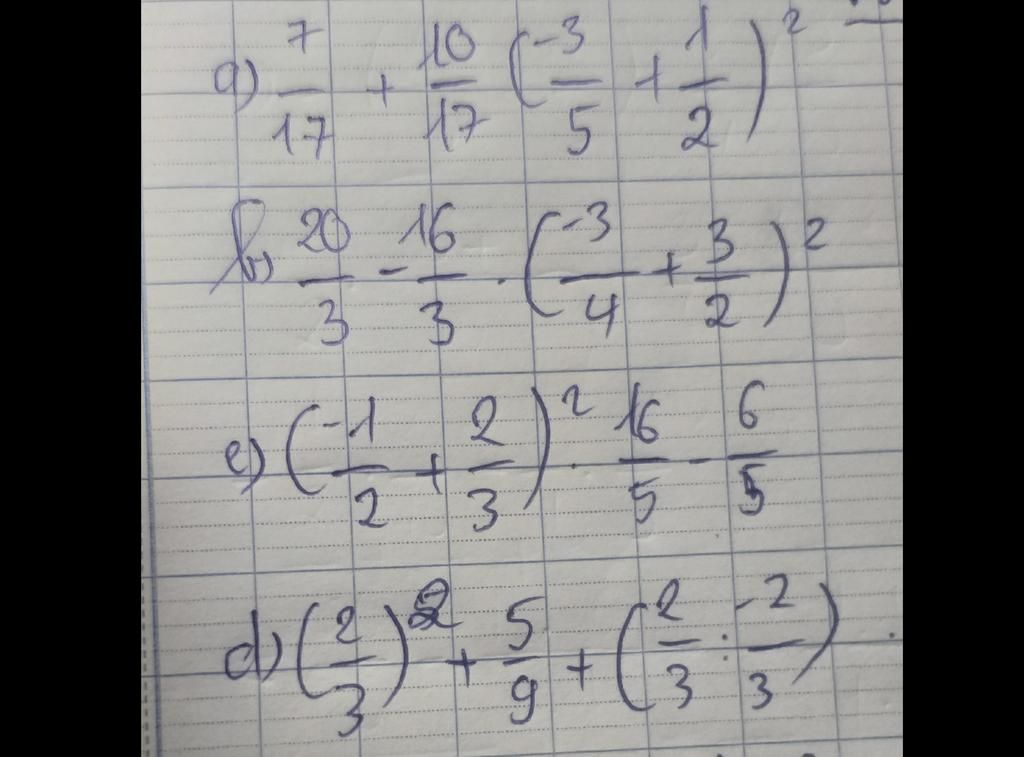 a) 7/17 + 10/17 (-3/5 + 1/2)²
b) 20/3 - 16/3 . (-3/4 + 3/2)²
c) (-1/2 + 2/3)² . 16/5 - 6/5
d) (2/3)² + 5/9 + (2/3 : -2/3)